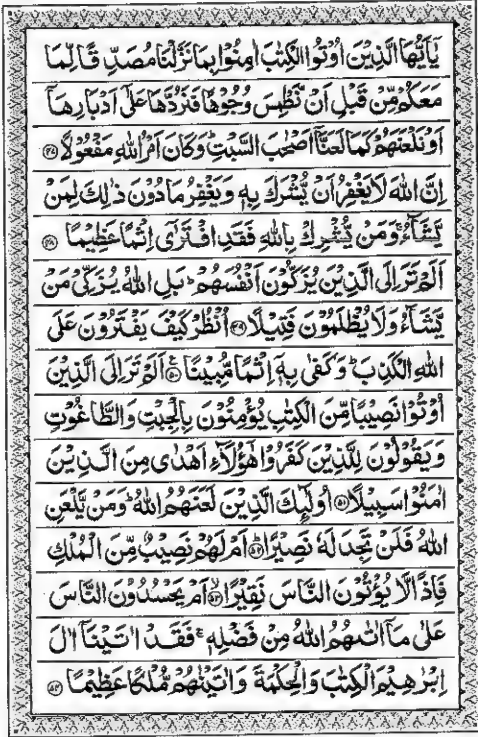 يٰۤاَيُّهَا الَّذِيْنَ اُوْتُوا الْكِتٰبَ اٰمِنُوْا بِمَا نَزَّلْنَا مُصَدِّقًا لِّمَا
مَعَكُمْ مِّنْ قَبْلِ اَنْ نَّطْمِسَ وُجُوْهًا فَنَرُدَّهَا عَلٰۤى اَدْبَارِهَاۤ
اَوْ نَلْعَنَهُمْ كَمَا لَعَنَّاۤ اَصْحٰبَ السَّبْتِؕ وَكَانَ اَمْرُ اللّٰهِ مَفْعُوْلًا ۝۴۷
اِنَّ اللّٰهَ لَا يَغْفِرُ اَنْ يُّشْرَكَ بِهٖ وَيَغْفِرُ مَا دُوْنَ ذٰلِكَ لِمَنْ
يَّشَآءُۚ وَمَنْ يُّشْرِكْ بِاللّٰهِ فَقَدِ افْتَرٰۤى اِثْمًا عَظِيْمًا ۝۴۸
اَلَمْ تَرَ اِلَى الَّذِيْنَ يُزَكُّوْنَ اَنْفُسَهُمْؕ بَلِ اللّٰهُ يُزَكِّيْ مَنْ
يَّشَآءُ وَلَا يُظْلَمُوْنَ فَتِيْلًا ۝۴۹ اُنْظُرْ كَيْفَ يَفْتَرُوْنَ عَلَى
اللّٰهِ الْكَذِبَؕ وَكَفٰى بِهٖۤ اِثْمًا مُّبِيْنًا ۝۵۰ اَلَمْ تَرَ اِلَى الَّذِيْنَ
اُوْتُوْا نَصِيْبًا مِّنَ الْكِتٰبِ يُؤْمِنُوْنَ بِالْجِبْتِ وَالطَّاغُوْتِ
وَيَقُوْلُوْنَ لِلَّذِيْنَ كَفَرُوْا هٰۤؤُلَآءِ اَهْدٰى مِنَ الَّذِيْنَ
اٰمَنُوْا سَبِيْلًا ۝۵۱ اُولٰٓئِكَ الَّذِيْنَ لَعَنَهُمُ اللّٰهُؕ وَمَنْ يَّلْعَنِ
اللّٰهُ فَلَنْ تَجِدَ لَهٗ نَصِيْرًا ۝۵۲ اَمْ لَهُمْ نَصِيْبٌ مِّنَ الْمُلْكِ
فَاِذًا لَّا يُؤْتُوْنَ النَّاسَ نَقِيْرًا ۝۵۳ اَمْ يَحْسُدُوْنَ النَّاسَ
عَلٰى مَاۤ اٰتٰىهُمُ اللّٰهُ مِنْ فَضْلِهٖۚ فَقَدْ اٰتَيْنَاۤ اٰلَ
اِبْرٰهِيْمَ الْكِتٰبَ وَالْحِكْمَةَ وَاٰتَيْنٰهُمْ مُّلْكًا عَظِيْمًا ۝۵۴